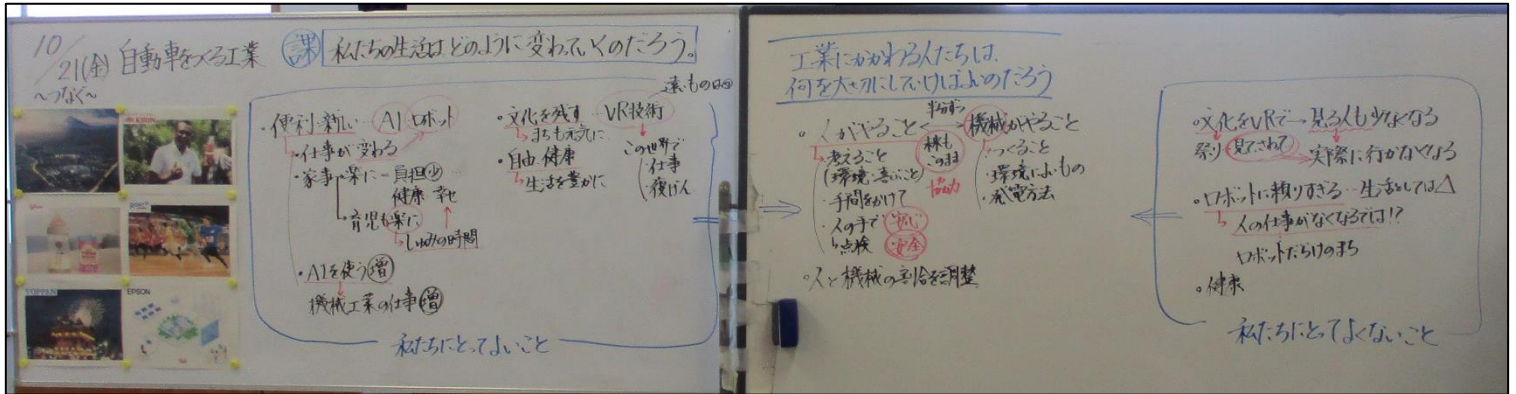 10/21(金) 自動車をつくる工業
～つなぐ～
課 私たちの生活はどのように変わっていくのだろう。
KIRIN
TOPPAN
EPSON
・便利・新しい AI ロボット
→仕事が変わる
・家事 楽に 負担少
健康 幸せ
育児も楽に
→しゅみの時間
・AIを使う増
機械工業の仕事増
・文化を残す VR技術
→まちも元気に
・自由 健康
→生活を豊かに
この世界で
・仕事
私たちにとってよいこと
工業にかかわる人たちは、
何を大切にしていけばよいのだろう
・人がやること ←→ 機械がやること
半分ずつ
このまま
協力
→考えること
・手間をかけて
・人の手で 安心
→点検 安全
・つくること
・環境によいもの
・発電方法
・人と機械の割合を調整
・文化をVRで→見る人も少なくなる
祭り 見てこれて →実際に行かなくなる
・ロボットに頼りすぎる…生活としては△
→人の仕事がなくなるでは!?
ロボットだらけのまち
・健康
私たちにとってよくないこと